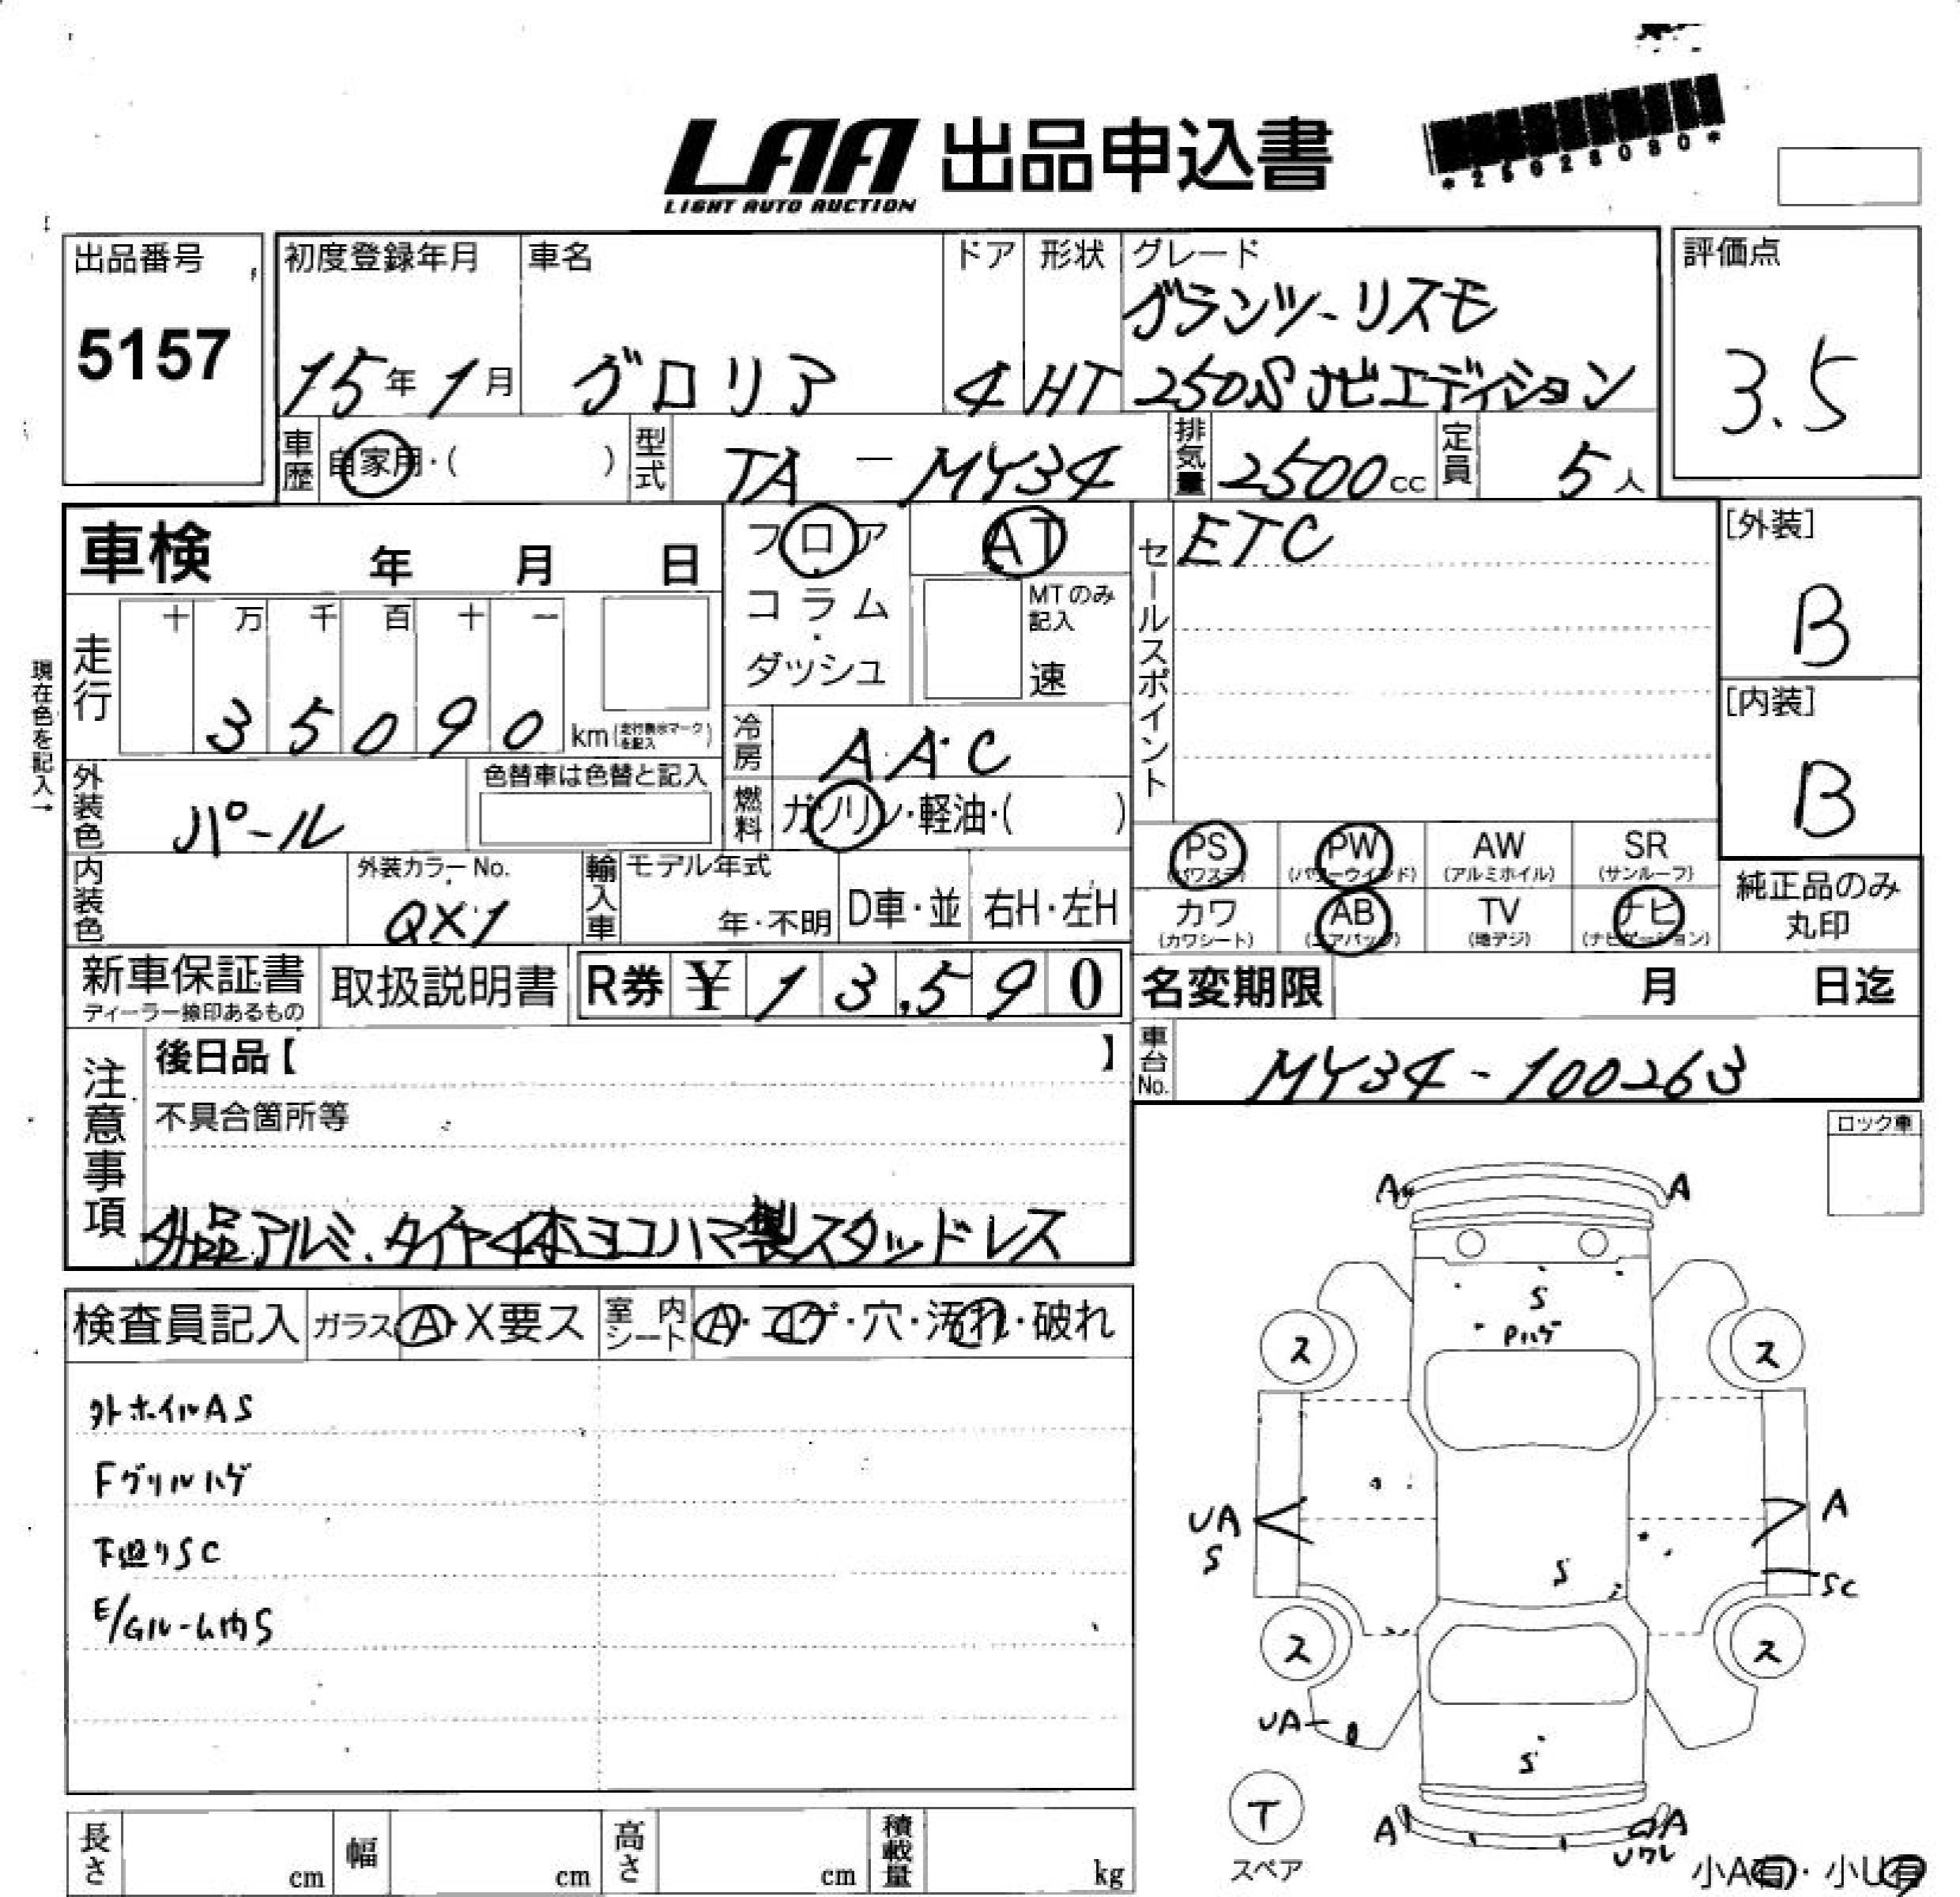 LAA 出品申込書
LIGHT AUTO AUCTION
*25028080*
出品番号
5157
初度登録年月
15年1月
車名
グロリア
ドア
4
形状
HT
グレード
グランツーリスモ
250S ナビエディション
評価点
3.5
車歴 自家用・( )
型式 TA-MY34
排気量 2500cc
定員 5人
車検 年 月 日
フロア
コラム
・
ダッシュ
AT
MTのみ
記入
速
セールスポイント
ETC
[外装]
B
[内装]
B
現在色を記入→
走行
十 万 千 百 十 一
3 5 0 9 0 km(走行表示マークを記入)
冷房 AAC
外装色 パール
色替車は色替と記入
燃料 ガソリン・軽油・( )
PS PW AW SR
(パワステ) (パワーウインド) (アルミホイル) (サンルーフ)
カワ AB TV ナビ
(カワシート) (エアバック) (地デジ) (ナビゲーション)
純正品のみ
丸印
内装色
外装カラーNo.
QX1
輸入車 モデル年式
年・不明 D車・並 右H・左H
新車保証書
ディーラー捺印あるもの
取扱説明書
R券 ¥ 13,590
名変期限 月 日迄
車台No. MY34-100263
注意事項
後日品【 】
不具合箇所等
外品アルミ.タイヤ4本ヨコハマ製スタッドレス
ロック車
検査員記入 ガラス A・X要ス 室内シート A・コゲ・穴・汚れ・破れ
外ホイルAS
Fグリルハゲ
下廻りSC
E/Gルーム内S
A A
S
Pハゲ
ス ス
UA
S
A
S
SC
ス ス
UA
S
T
スペア
A A
Uワレ
小A有・小U有
長さ cm 幅 cm 高さ cm 積載量 kg